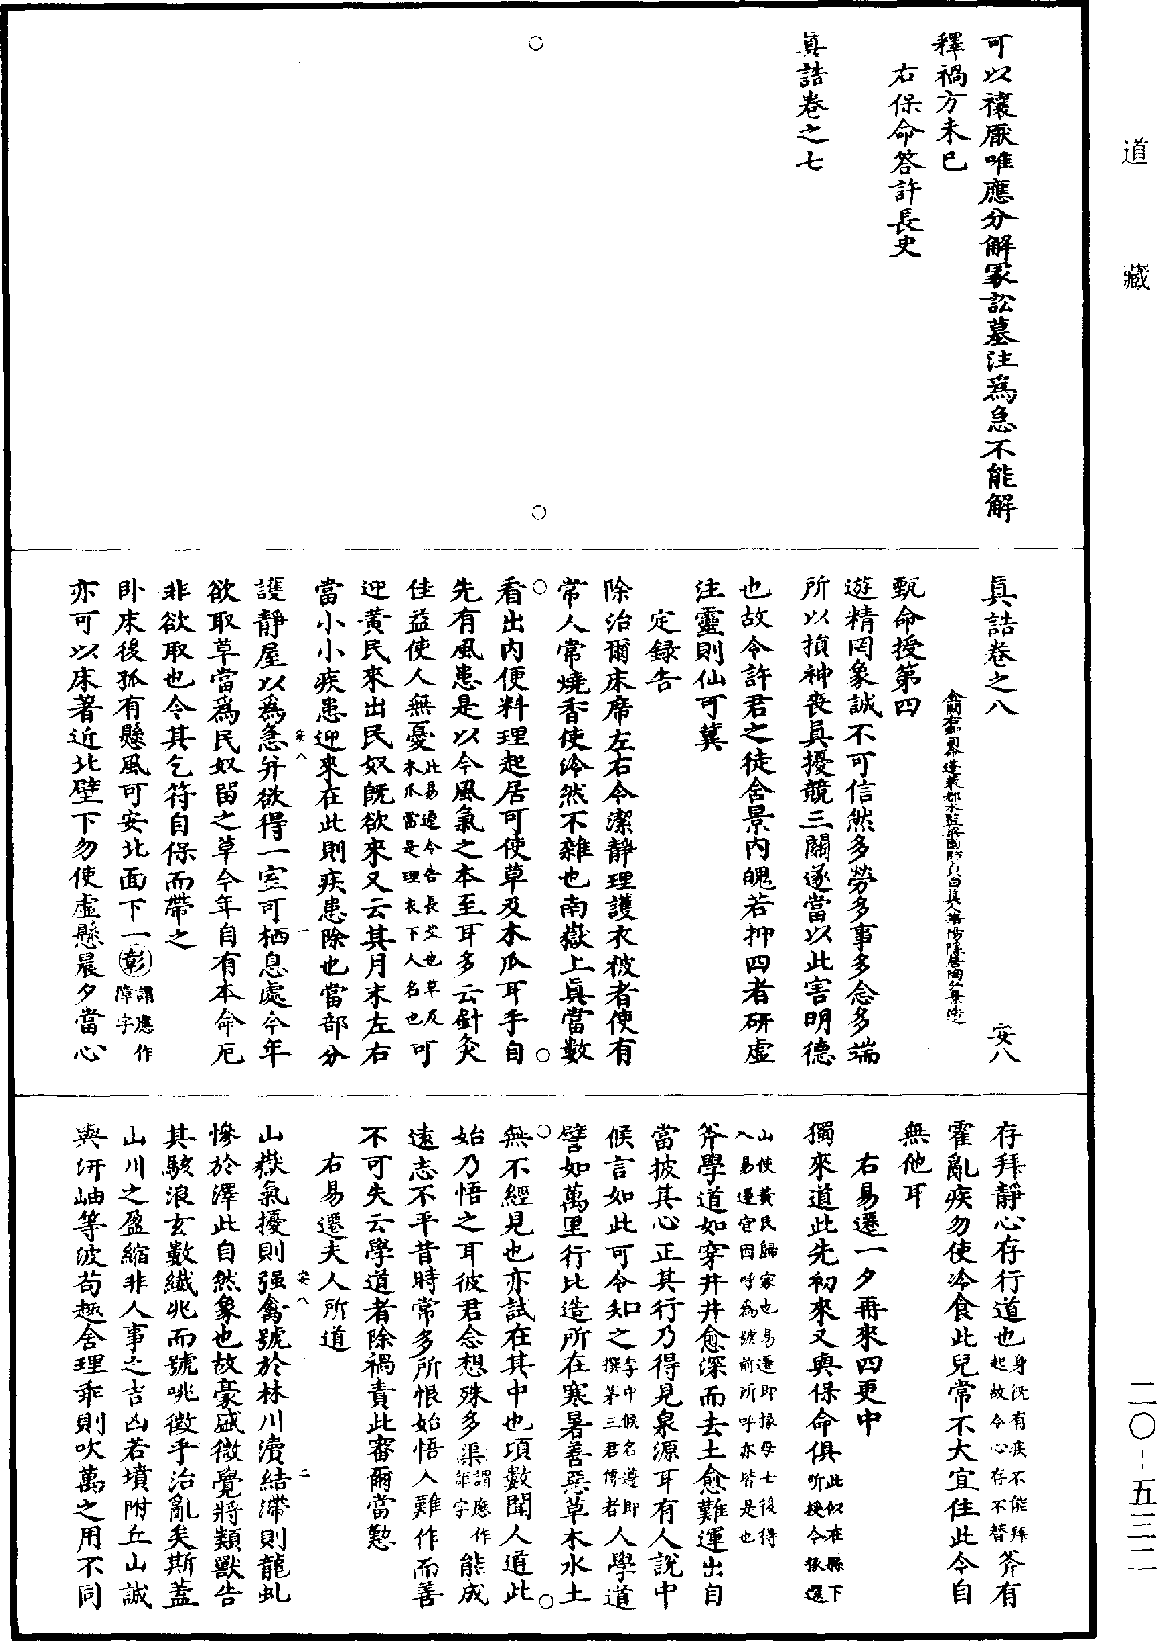 道藏
可以禳厭唯應分解冢訟墓注爲急不能解
釋禍方未已
右保命答許長史
眞誥卷之七
眞誥卷之八
安八
甄命授第四
遊精罔象誠不可信然多勞多事多念多端
所以損神喪眞擾競三關遂當以此害明德
也故令許君之徒舍景內魄若抑四者研虛
注靈則仙可冀
定録告
除治爾床席左右令潔靜理護衣被者使有
常人常燒香使泠然不雜也南嶽上眞當數
看出內便料理起居可使草及木瓜耳手自
先有風患是以令風氣之本至耳多云針灸
佳益使人無憂此易遷令告長史也草及木瓜當是理衣下人名也可
迎黄民來出民奴旣欲來又云其月末左右
當小小疾患迎來在此則疾患除也當部分
護靜屋以爲急并欲得一室可栖息處今年
欲取草當爲民奴留之草今年自有本命厄
非欲取也令其乞符自保而帶之
卧床後孤有懸風可安北面下一彰謂應作障字
亦可以床著近北壁下勿使虛懸晨夕當心
存拜靜心存行道也身旣有疾不能拜起故令心存不替斧有
霍亂疾勿使冷食此兒常不大宜住此令自
無他耳
右易遷一夕再來四更中
獨來道此先初來又與保命俱此似在縣下所授令掾還
山使黄民歸家也易遷即掾母亡後得入易遷宮因呼爲號前所呼亦皆是也
斧學道如穿井井愈深而去土愈難運出自
當披其心正其行乃得見泉源耳有人說中
候言如此可令知之李中候名遵即撰茅三君傳者人學道
譬如萬里行比造所在寒暑善惡草木水土
無不經見也亦試在其中也項數聞人道此
始乃悟之耳彼君念想殊多渠謂應作詎字能成
遠志不平昔時常多所恨始悟人難作而善
不可失云學道者除禍責此審爾當懃
右易遷夫人所道
山嶽氣擾則强禽號於林川瀆結滯則龍虬
慘於澤此自然象也故豪戚微覺將類獸告
其駭浪玄數纖兆而號咷徵乎治亂矣斯蓋
山川之盈縮非人事之吉凶若墳附丘山誠
與汧岫等波苟趣舍理乖則吹萬之用不同
安八 一
安八 二
二〇-五三二